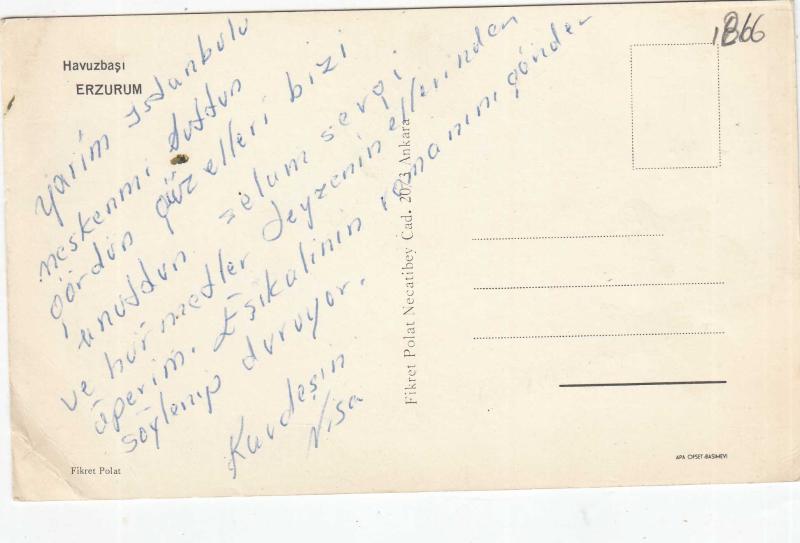 Havuzbaşı
ERZURUM
1866
Yarim istanbulu
meskenmi duttun
gördün güzelleri bizi
unuttun. selam sergi
ve hürmetler Teyzenin ellerinden
öperim. romanını gönder
söylenip duruyor.
Kardeşin
Nisa
Fikret Polat Necatibey Cad. 20/3 Ankara
Fikret Polat
APA OFSET-BASIMEVİ